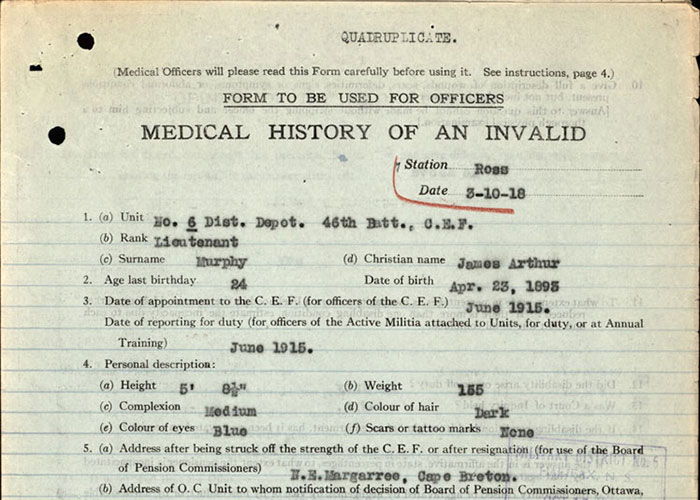 QUADRUPLICATE.
(Medical Officers will please read this Form carefully before using it. See instructions, page 4.)
FORM TO BE USED FOR OFFICERS
MEDICAL HISTORY OF AN INVALID
Station Ross
Date 3-10-18
1. (a) Unit No. 6 Dist. Depot. 46th Batt., C.E.F.
(b) Rank Lieutenant
(c) Surname Murphy (d) Christian name James Arthur
2. Age last birthday 24 Date of birth Apr. 23, 1893
3. Date of appointment to the C. E. F. (for officers of the C. E. F.) June 1915.
Date of reporting for duty (for officers of the Active Militia attached to Units, for duty, or at Annual
Training) June 1915.
4. Personal description:
(a) Height 5' 8½" (b) Weight 155
(c) Complexion Medium (d) Colour of hair Dark
(e) Colour of eyes Blue (f) Scars or tattoo marks None
5. (a) Address after being struck off the strength of the C. E. F. or after resignation (for use of the Board
of Pension Commissioners) N.E.Margarree, Cape Breton.
(b) Address of O. C Unit to whom notification of decision of Board of Pension Commissioners, Ottawa,